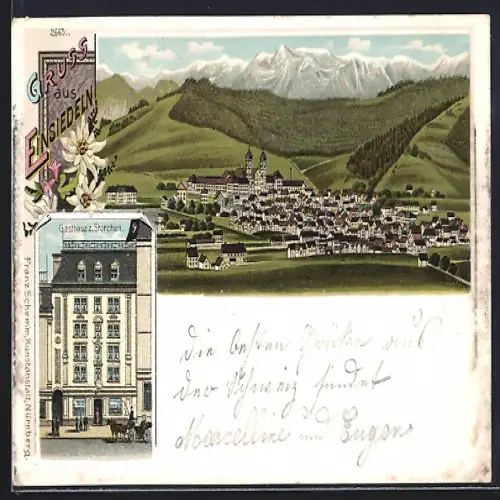 2663.
GRUSS
aus
EINSIEDELN.
Gasthaus z. Storchen.
Franz Schemm, Kunstanstalt, Nürnberg.
Die besten Grüße aus
der Schweiz sendet
Marcelline und Eugen